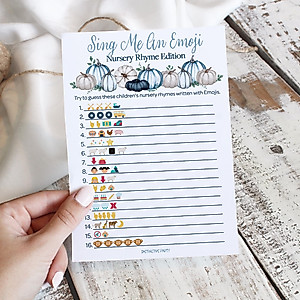 Sing Me An Emoji
Nursery Rhyme Edition
Try to guess these children's nursery rhymes written with Emojis.
1.
2.
3.
4.
5.
6.
7.
8.
9.
10.
11.
12.
13.
14.
15.
16.